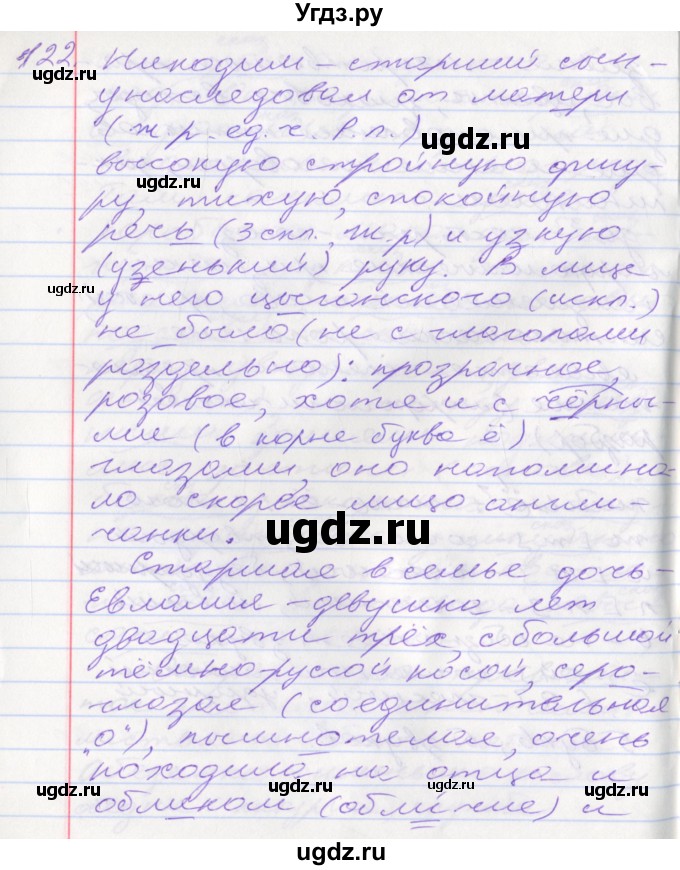 Угдз.ру
122. Никодим – старший сын –
унаследовал от матери
(ж.р. ед.ч. Р.п.)
высокую стройную фигу-
ру, тихую, спокойную
речь (3 скл., ж.р) и узкую
(узенький) руку. В лице
у него цыганского (искл.)
не было (не с глаголами
раздельно): прозрачное,
розовое, хотя и с чёрны-
ми (в корне буква ё)
глазами, оно напомина-
ло скорее лицо англи-
чанки.
Старшая в семье дочь –
Евлалия – девушка лет
двадцати трёх, с большой
тёмно-русой косой, серо-
глазая (соединительная
"о"), пышнотелая, очень
походила на отца и
обликом (обличие) и
ugdz.ru
ugdz.ru
ugdz.ru
ugdz.ru
ugdz.ru
ugdz.ru
ugdz.ru
ugdz.ru
ugdz.ru
ugdz.ru
ugdz.ru
ugdz.ru